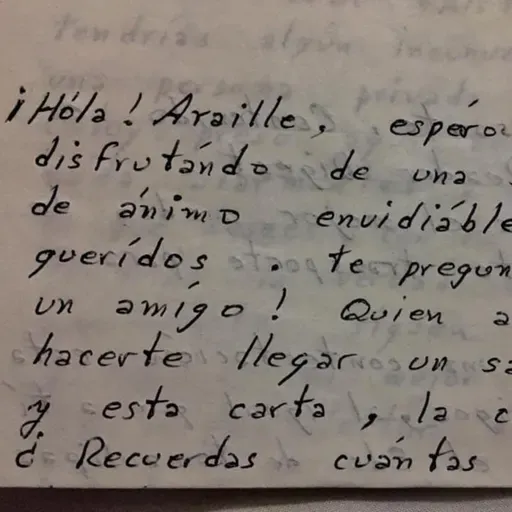 tendrías algún
¡Hóla! Araille, espéro
disfrutándo de una
de ánimo envidiáble
querídos. te pregun
un amígo! Quien a
hacerte llegar un sa
y esta carta, la c
¿Recuerdas cuántas